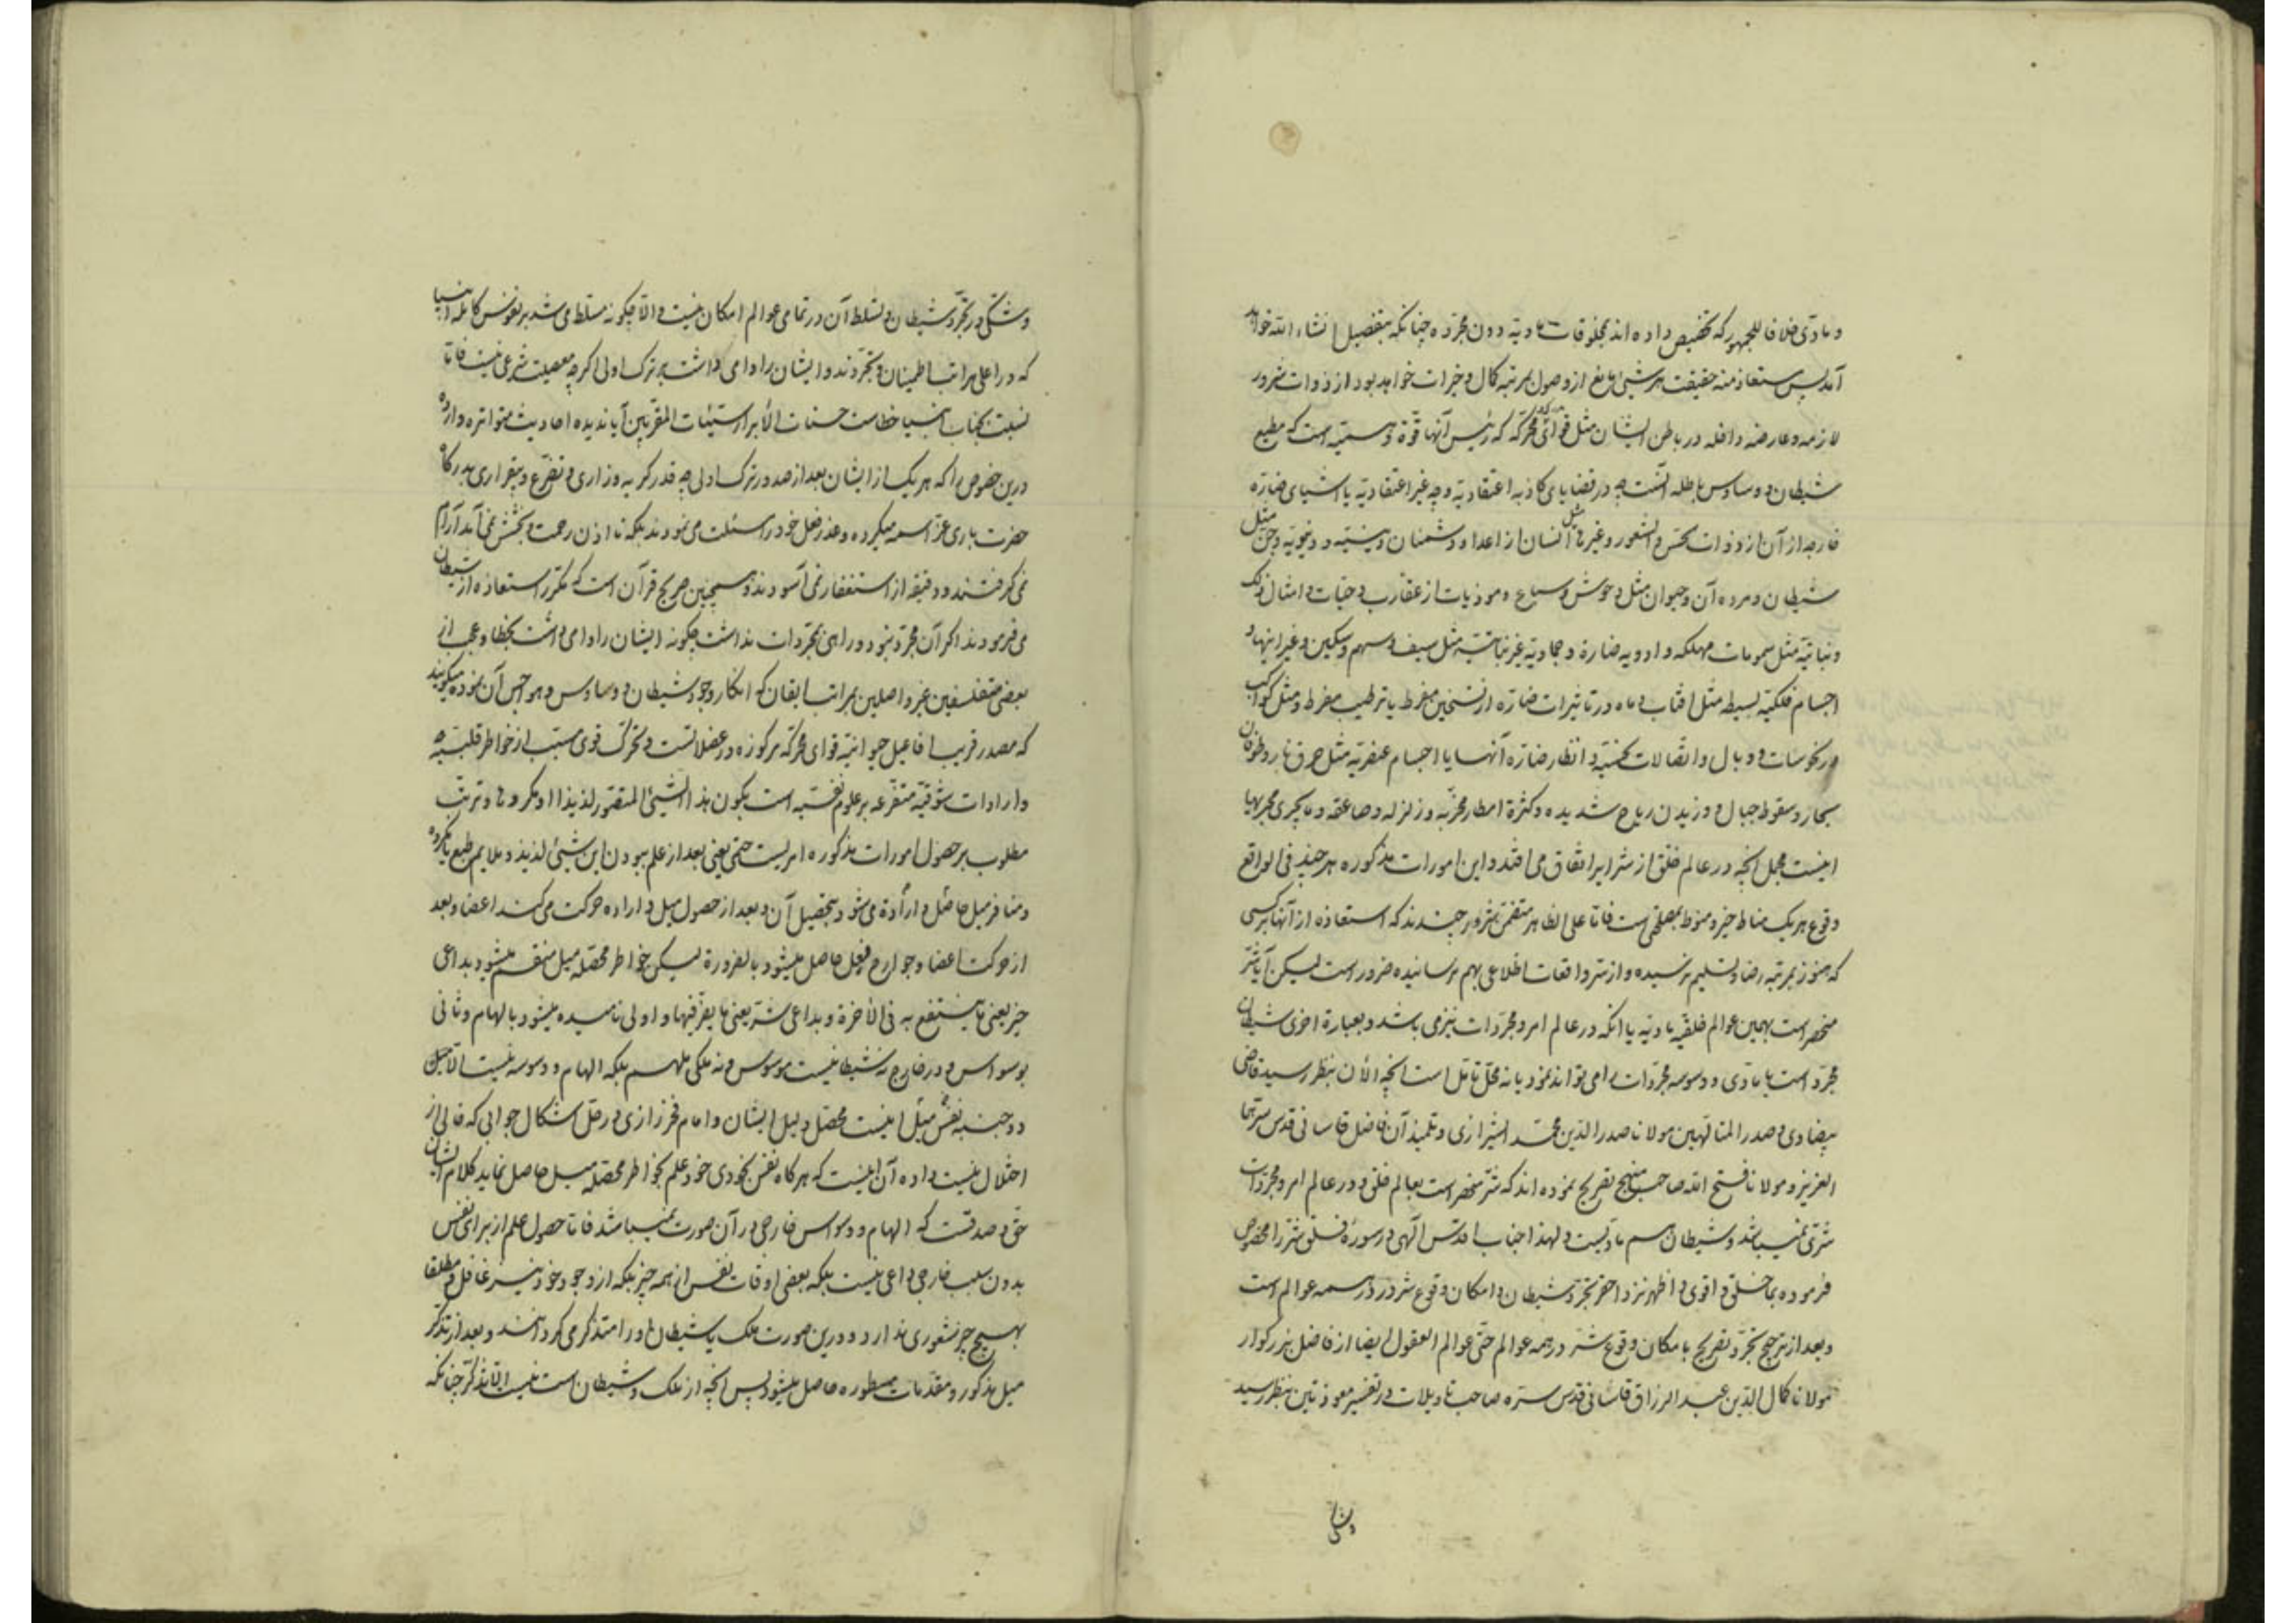 و مادّی خلافا للجمهور که تخصیص داده اند بمخلوقات مادیّه دون مجرّده چنانکه بتفصیل انشاء الله خواهد
آمد پس مستعاذ منه حقیقت هر شئ مانع از وصول بمرتبه کمال و خیرات خواهد بود از ذوات شرور
لازمه و عارضه داخله در باطن ایشان مثل قوائی محرّکه که رئیس آنها قوّة وهمیّه است که مطیع
شیطان و وساوس باطله است چه در قضایای کاذبه اعتقادیّه و چه غیر اعتقادیّه یا اشیای ضارّه
خارجه از آن از ذوات الحسّ و الشعور و غیرها مثل انسان از اعدا و دشمنان دینیّه و دنیویّه و جنّ مثل
شیطان و مرده آن و حیوان مثل وحوش و سباع و موذیات از عقارب و حیّات و امثال ذلک
و نباتیّه مثل سمومات مهلکه و ادویه ضارة و جمادیّه غیر نباتیّه مثل سیف و سهم و سکین و غیر اینها و
اجسام فلکیّه بسیطه مثل افتاب و ماه در تاثیرات ضارّه از تسخین مفرط یا ترطیب مفرط و مثل کواکب
در نحوسات و وبال و اتّصالات نحسیّه و انظار ضارّه آنها یا اجسام عنصریّه مثل حرق نار و طوفان
بحار و سقوط جبال و وزیدن ریاح شدیده و کثرة امطار مخرّبه و زلزله و صاعقه و ما یجری مجریها
اینست مجمل آنچه در عالم خلق از شرایر اتّفاق می افتد و این امورات مذکوره هر چند فی الواقع
وقوع هر یک مناط خیر و منوط بمصلحتی است فامّا علی الظاهر متضمّن شرور چندند که استعاذه از آنها بر کسی
که هنوز بمرتبه رضا و تسلیم نرسیده و از سرّ واقعات اطّلاعی بهم نرسانیده ضرور است لیکن آیا شرّ
منحصر است بهمین عوالم خلقیّه مادیّه یا انکه در عالم امر و مجرّدات نیز می باشد و بعبارة اخری شیطان
مجرّد است یا مادّی و وسوسه مجرّدات را می تواند نمود یا نه محلّ تامّل است آنچه الأن بنظر رسید قاضی
بیضاوی و صدر المتالّهین مولانا صدر الدّین محمّد الشیرازی و تلمیذ آن فاضل قاسانی قدّس سرّهما
العزیز و مولانا فتح الله صاحب منهج تصریح نموده اند که شرّ منحصر است بعالم خلق و در عالم امر و مجرّدات
شرّی نمیباشد و شیطان هم مادّیست و لهذا جناب اقدس الهی در سورۀ فلق شرّ را مخصوص
فرموده بما خلق و اقوی و اظهر نزد احقر تجرّد شیطان و امکان وقوع شرور در همه عوالم است
و بعد از ترجیح تجرّد تصریح بامکان وقوع شر در همه عوالم حتّی عوالم العقول ایضا از فاضل بزرگوار
مولانا کمال الدّین عبد الرزاق قاسانی قدّس سرّه صاحب تاویلات در تفسیر معوذتین بنظر رسید
و شکی
و شکّی در تجرّد شیطان و تسلّط آن در تمامی عوالم امکان نیست و الّا چگونه مسلّط می شد بر نفوس کامله انبیا
که در اعلی مراتب اطمینان و تجرّدند و ایشان را وا می داشت بر ترک اولی اگر چه معصیت شرعی نیست فامّا
نسبت بجناب انبیا خطاست حسنات الأبرار سیّئات المقرّبین آیا ندیده احادیث متواتره وارده
درین خصوص را که هر یک از ایشان بعد از صدور ترک اولی چه قدر گریه و زاری و تضرّع و بیقراری بدرگاه
حضرت باری عزّ اسمه میکرده و عذر فعل خود را مسئلت می نمودند بلکه تا اذن رحمت و بخشش نمی آمد آرام
نمی گرفتند و دقیقه از استغفار نمی آسودند و همچنین صریح قرآن است که مکرّر استعاذه از شیطان
می فرمودند اگر آن مجرّد نبود و راهی بمجرّدات نداشت چگونه ایشان را وا می داشت بخطا و عجب از
بعضی متفلسفین غیر واصلین بمراتب ایقان که انکار وجود شیطان و وساوس و هواجس آن نموده میگویند
که مصدر قریب افاعیل حیوانیّه قوای محرّکه مرکوزه در عضلاتست و تحرّک قوی مسبّب از خواطر قلبیّه
و ارادات شوقیّه متفرّعه بر علوم نفسیّه است بکون هذا الشئ المتصوّر لذیذا او مکروها و ترتّب
مطلوب بر حصول امورات مذکوره امریست حتمی یعنی بعد از علم ببودن این شئ لذیذ و ملایم طبع یا مکروه
و منافر میل حاصل و ارادة می شود بتحصیل آن و بعد از حصول میل و اراده حرکت می کند اعضا و بعد
از حرکت اعضا و جوارح فعل حاصل میشود بالضرورة لیکن خواطر محصّله میل منقسم میشود بداعی
خیر یعنی ما ینتفع به فی الأخرة و بداعی شرّ یعنی ما یضرّ فیها و اولی نامیده میشود بالهام و ثانی
بوسواس و در خارج نه شیطانیست موسوس و نه ملکی ملهم بلکه الهام و وسوسه نیست الّا میل
دو جنبه نفس اینست محصّل دلیل ایشان و امام فخر رازی در حلّ اشکال جوابی که خالی از
اختلال نیست داده آن اینست که هرگاه نفس بخودی خود علم بخواطر محصّله میل حاصل نماید کلام ایشان
حقّ و صدقست که الهام و وسواس خارجی در آن صورت نمیباشد فامّا حصول علم از برای نفس
بدون سبب خارجی داعی نیست بلکه بعضی اوقات نفس از همه چیز بلکه از وجود خود نیز غافل و مطلقا
بهیچ چیز شعوری ندارد و درین صورت ملک یا شیطان او را متذکّر می گردانند و بعد از تذکّر
میل مذکور و مقدّمات مسطوره حاصل میشود پس آنچه از ملک و شیطان است نیست الّا تذکّر چنانکه